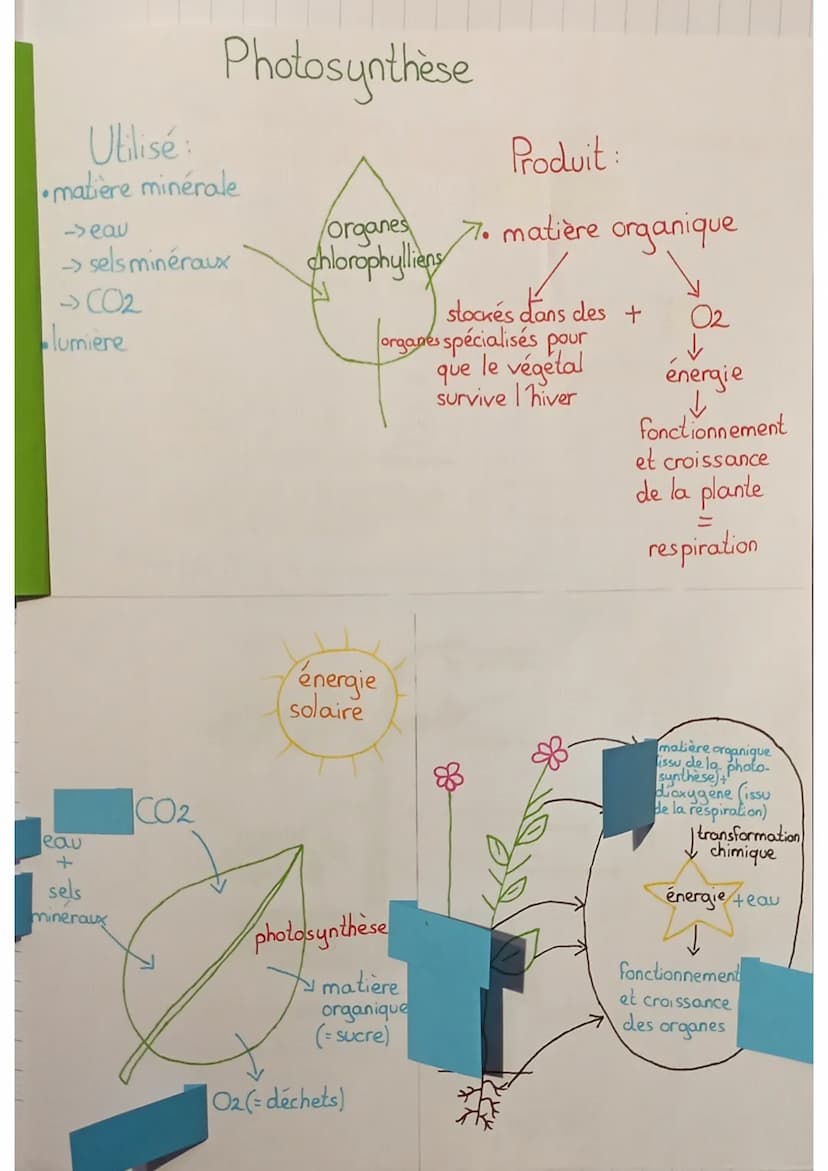 Photosynthèse
Utilisé :
•matière minérale
→eau
→ sels minéraux
→ CO2
•lumière
organes
chlorophylliens
Produit :
• matière organique
stockés dans des + O2
organes spécialisés pour
que le végétal
survive l'hiver
énergie
fonctionnement
et croissance
de la plante
=
respiration
énergie
solaire
CO2
eau
+
sels
minéraux
photosynthèse
matière
organique
(= sucre)
O2 (= déchets)
matière organique
(issu de la photo-
synthèse)+
dioxygène (issu
de la respiration)
transformation
chimique
énergie +eau
fonctionnement
et croissance
des organes